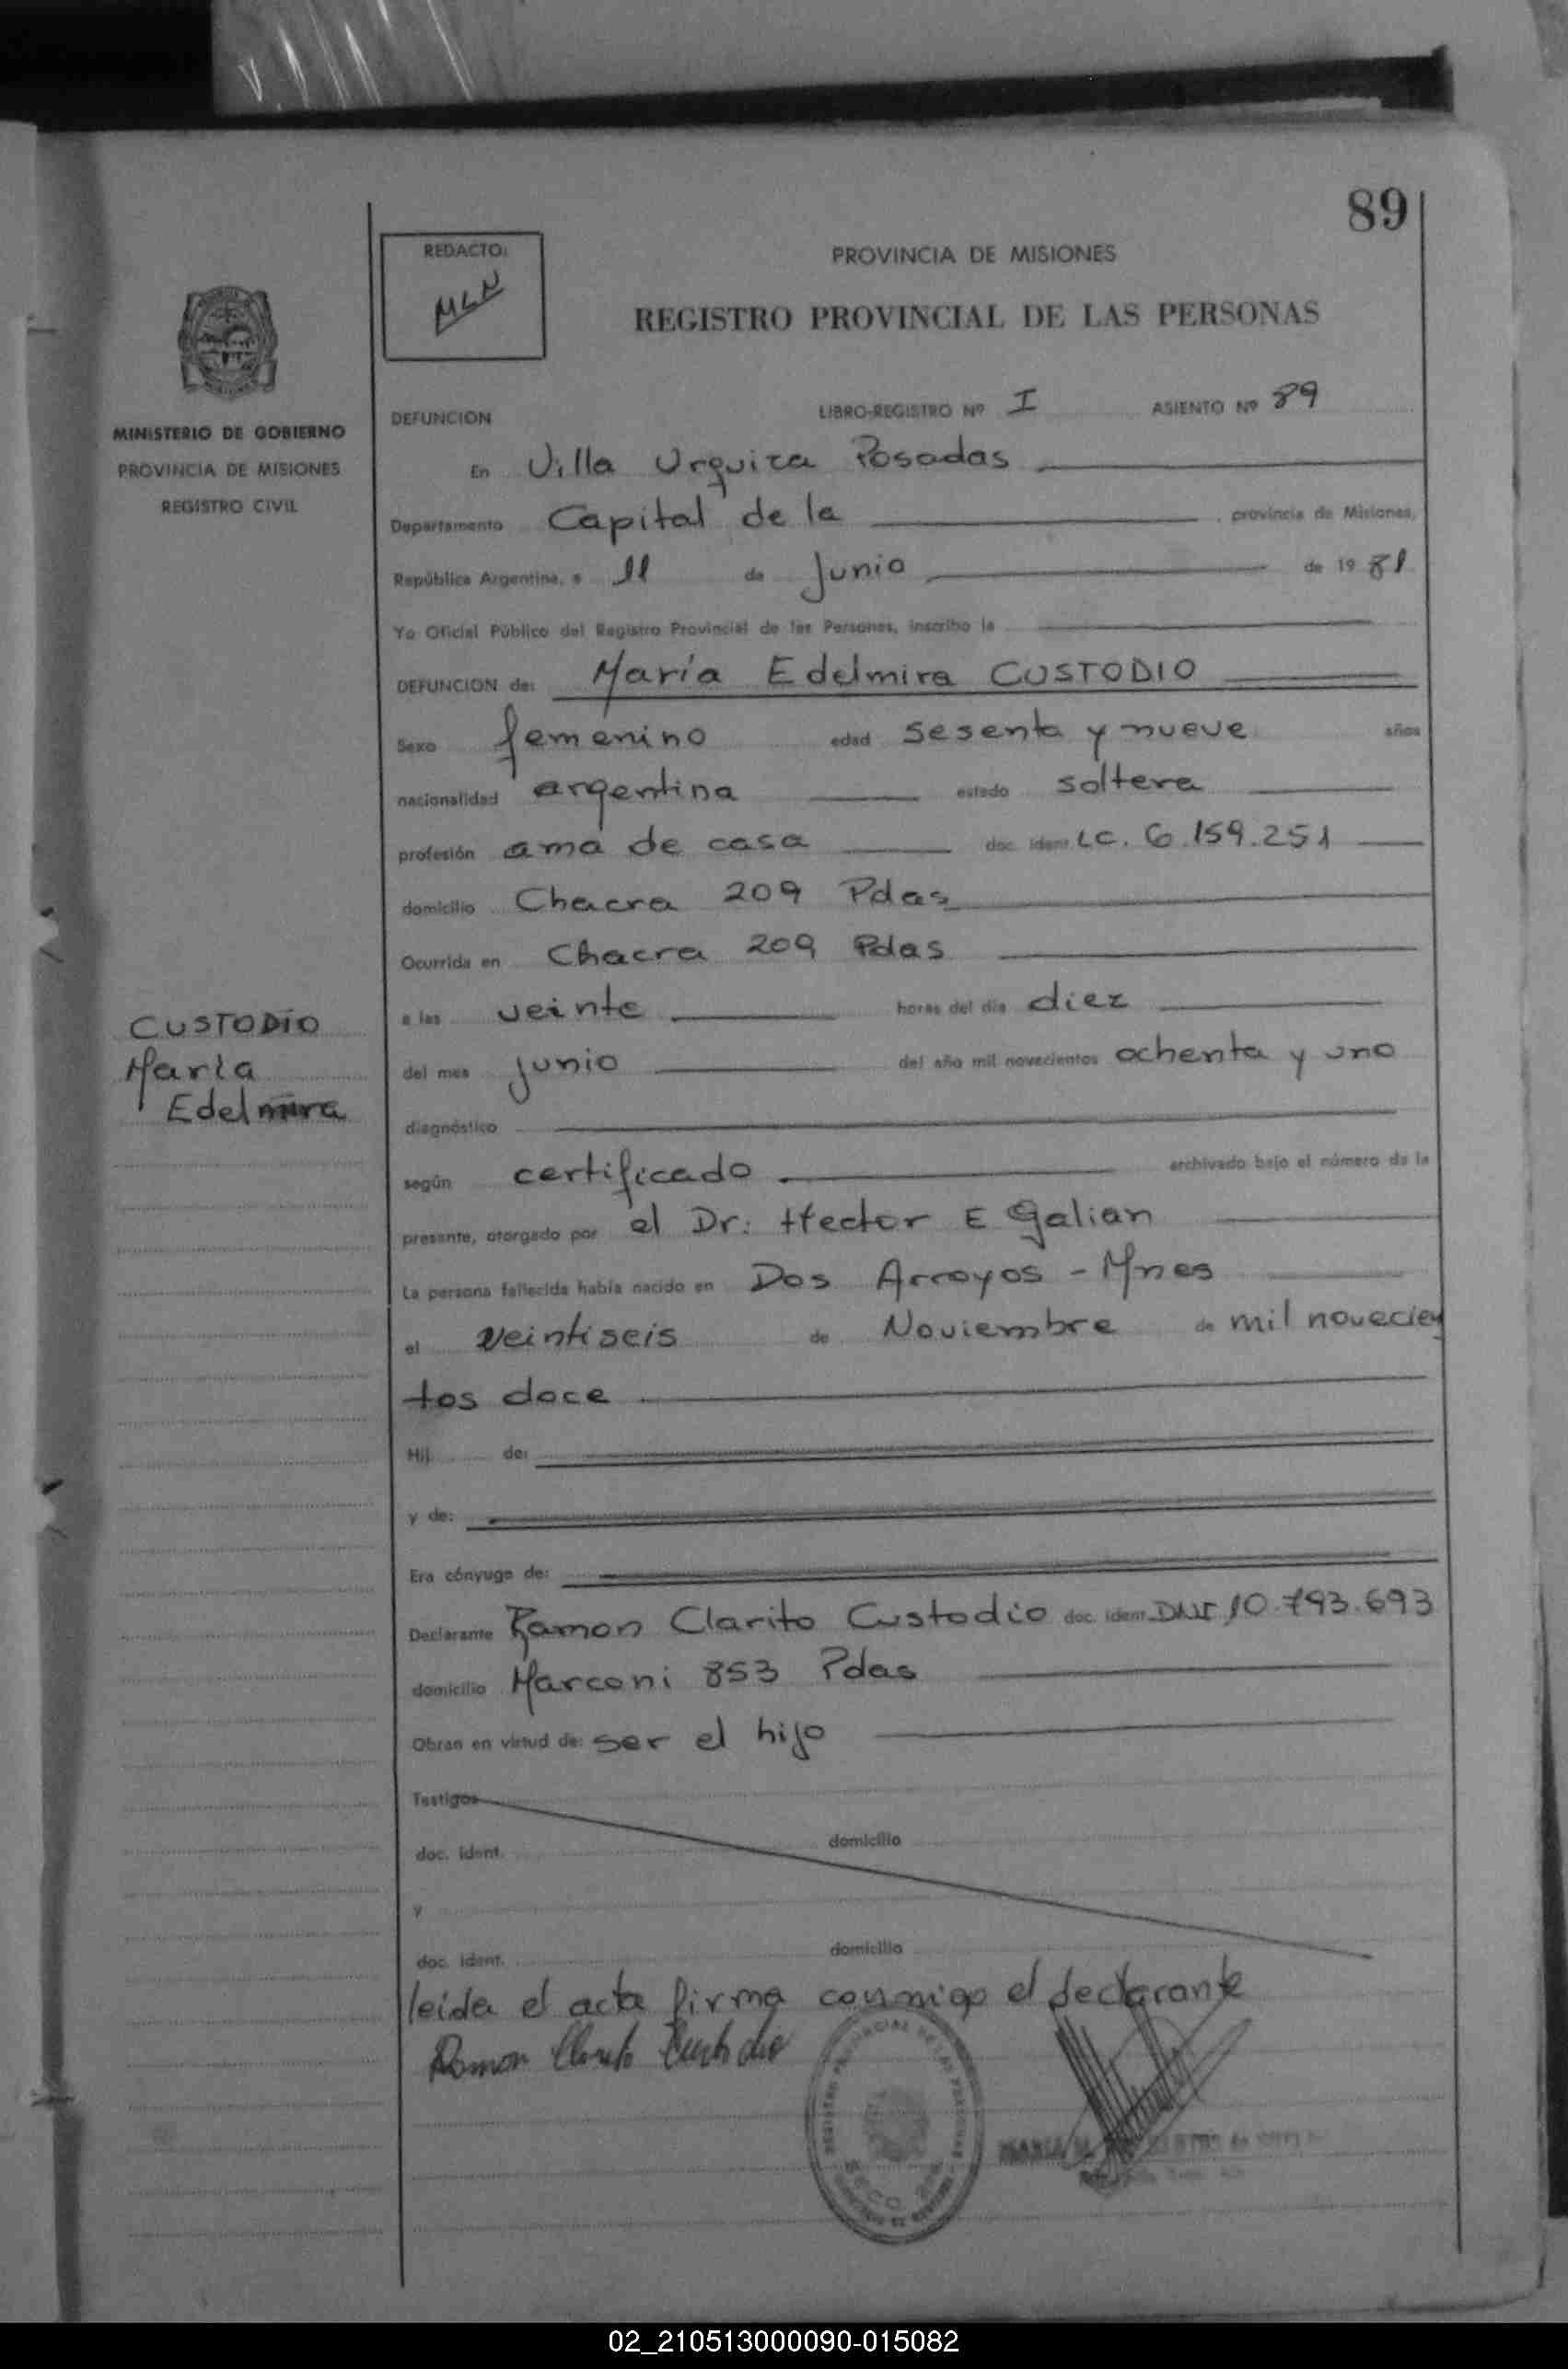 89
REDACTO:
MLN
PROVINCIA DE MISIONES
REGISTRO PROVINCIAL DE LAS PERSONAS
MINISTERIO DE GOBIERNO
PROVINCIA DE MISIONES
REGISTRO CIVIL
DEFUNCION LIBRO-REGISTRO Nº I ASIENTO Nº 89
En Villa Urquiza Posadas
Departamento Capital de la , provincia de Misiones,
República Argentina, a 11 de Junio de 19 81
Yo Oficial Público del Registro Provincial de las Personas, inscribo la
DEFUNCION de: María Edelmira CUSTODIO
Sexo femenino edad sesenta y nueve años
nacionalidad argentina estado soltera
profesión ama de casa doc. ident. LC. 6.159.251
domicilio Chacra 209 Pdas
Ocurrida en Chacra 209 Pdas
a las veinte horas del día diez
del mes junio del año mil novecientos ochenta y uno
CUSTODIO
María
Edelmira
diagnóstico
según certificado archivado bajo el número de la
presente, otorgado por el Dr: Hector E Galian
La persona fallecida había nacido en Dos Arroyos - Mnes
el veintiseis de Noviembre de mil novecien
tos doce
Hij de:
y de:
Era cónyuge de:
Declarante Ramon Clarito Custodio doc. ident. DNI 10.793.693
domicilio Marconi 853 Pdas
Obran en virtud de: ser el hijo
Testigos
doc. ident. domicilio
y
doc. ident. domicilio
leida el acta firma conmigo el declarante
Ramon Clarito Custodio
MARIA
02_210513000090-015082